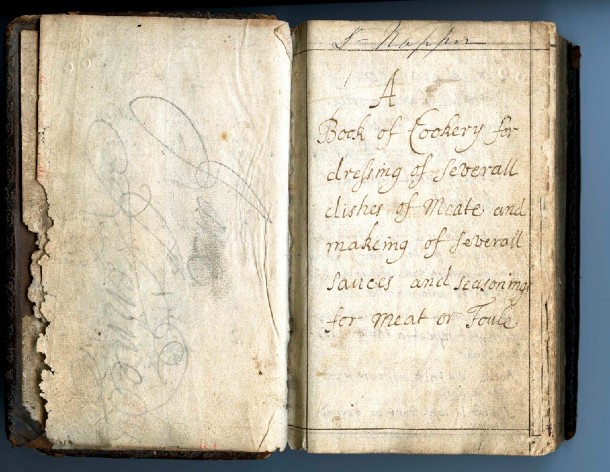 A
Book of Cookery for
dressing of Severall
dishes of Meate and
makeing of Severall
sauces and seasoning
for meat or Foule